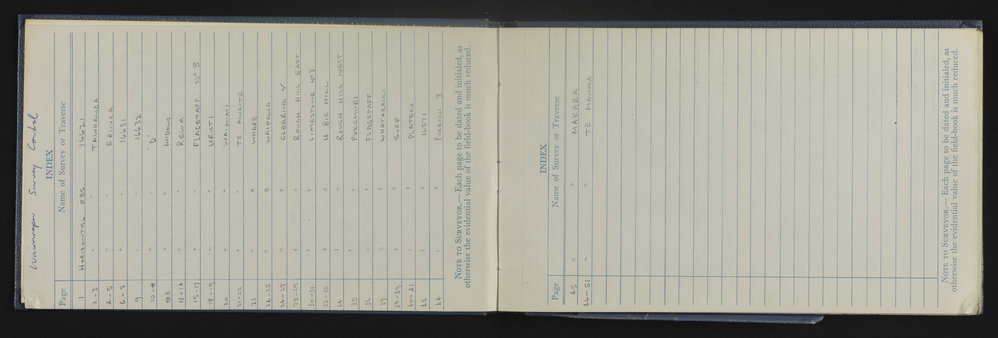 Wairarapa Survey Control
INDEX
Page Name of Survey or Traverse
1 HORIZONTAL OBS 16621
2-3 " " TAWARUNGA
4-5 " " ERINGA
6-8 " " 16631
9 " " 16632
10-11 " " 'D'
12A " " WIDOWS
11-12 " " REWA
15-17 " " FLAGSTAFF Nº 3
18-19 " " URUTI
20 " " WAINIMI
21-22 " " TE AWAITE
23 " " WHARE
24-25 " " WAIPAUA
26-27 " " CLEARING V
28-29 " " ROUGH HILL EAST
30-31 " " LIMESTONE Nº 1
32-33 " " H BIG HILL
34 " " ROUGH HILL WEST
35 " " PUKEMURI
36 " " FLAGSTAFF
37 " " WHATARANGI
38-39 " " SUOF
40-41 " " PLATEAU
42 " " 11571
44 " " PUKEMURI 3
NOTE TO SURVEYOR.— Each page to be dated and initialed, as
otherwise the evidential value of the field-book is much reduced.
INDEX
Page Name of Survey or Traverse
45 " " MAKARA
46-51 " " TE MAUNGA
NOTE TO SURVEYOR.— Each page to be dated and initialed, as
otherwise the evidential value of the field-book is much reduced.